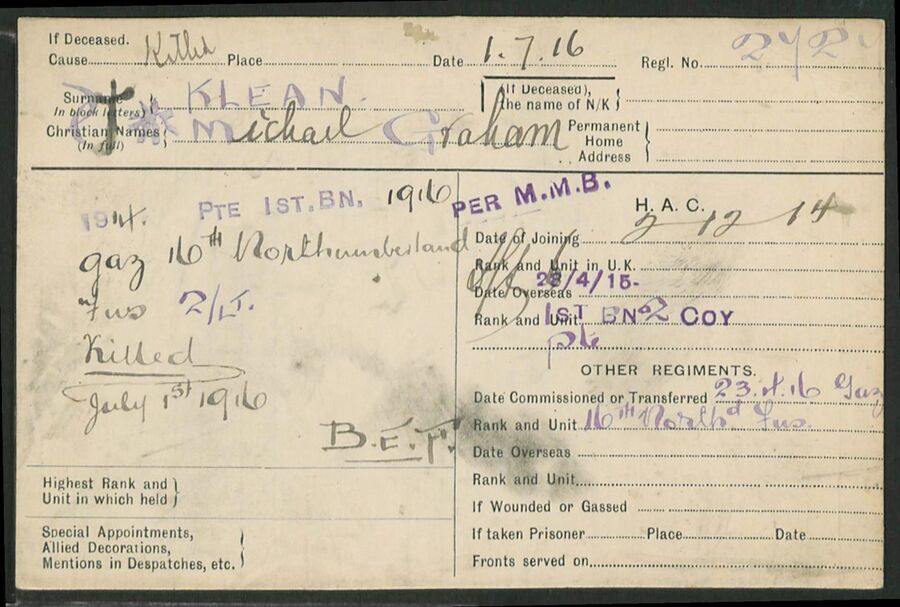 If Deceased.
Cause Killed Place Date 1.7.16 Regl. No.
Surname (In block letters) KLEAN. (If Deceased), the name of N/K
Christian Names (In full) Michael Graham Permanent Home Address
1914. PTE 1ST. BN, 1916 PER M.M.B.
gaz 16TH Northumberland
Fus 2/LT.
Killed
July 1st 1916
B.E.F.
Highest Rank and
Unit in which held
Special Appointments,
Allied Decorations,
Mentions in Despatches, etc.
H. A. C.
Date of Joining 2 12 14
Rank and Unit in U.K.
Date Overseas 28/4/15-
Rank and Unit 1ST BN 2 COY
Pte
OTHER REGIMENTS.
Date Commissioned or Transferred 23.4.16 Gaz
Rank and Unit 16th North'd Fus.
Date Overseas
Rank and Unit
If Wounded or Gassed
If taken Prisoner Place Date
Fronts served on